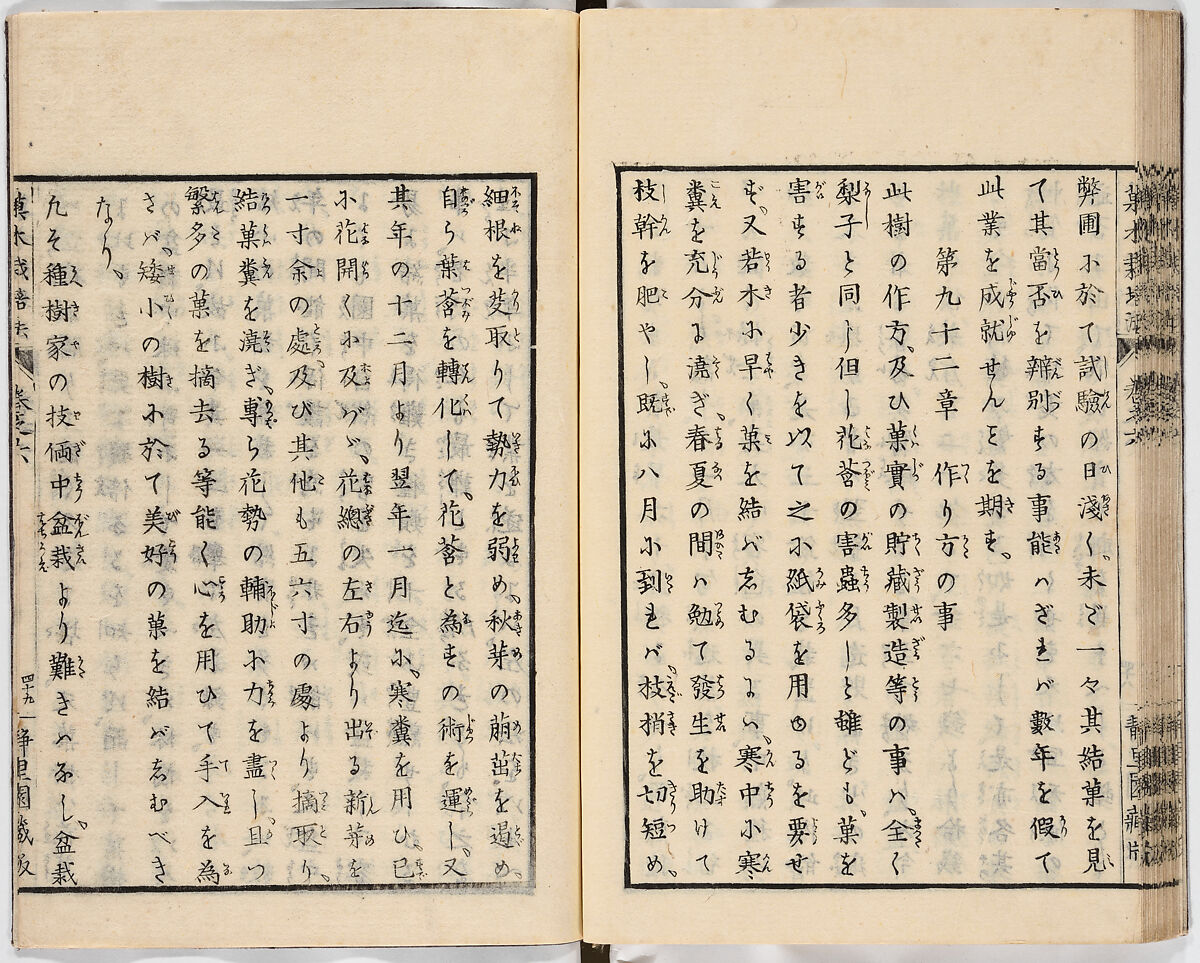 菓木栽培法 卷之六 靜里園藏
弊圃ニ於て試驗の日淺く、未ざ一々其結菓を見
て其當否を辨別する事能ハざれバ數年を假て
此業を成就せんことを期す、
第九十二章 作り方の事
此樹の作方、及ひ菓實の貯藏製造等の事ハ、全く
梨子と同じ但し花莟の害蟲多しと雖ども、菓を
害する者少きを以て之に紙袋を用ゆるを要せ
ず、又若木に早く菓を結バしむるにハ、寒中に寒
糞を充分に澆ぎ、春夏の間ハ勉て發生を助けて
枝幹を肥やし、既に八月に到れバ、枝梢を切短め、
細根を芟取りて勢力を弱め、秋芽の萠茁を遏め、
自ら葉莟を轉化して、花莟と為すの術を運し、又
其年の十二月より翌年一月迄に、寒糞を用ひ、已
に花開くに及バヾ、花總の左右より出る新芽を
一寸余の處及び其他も五六寸の處より摘取り、
結菓糞を澆ぎ、專ら花勢の輔助に力を盡し且つ
繁多の菓を摘去る等能く心を用ひて手入を為
さバ、矮小の樹に於て美好の菓を結バしむべき
なり、
凡そ種樹家の技倆中盆栽より難きハなし、盆栽
菓木栽培法 卷之六 四十九 靜里園藏版